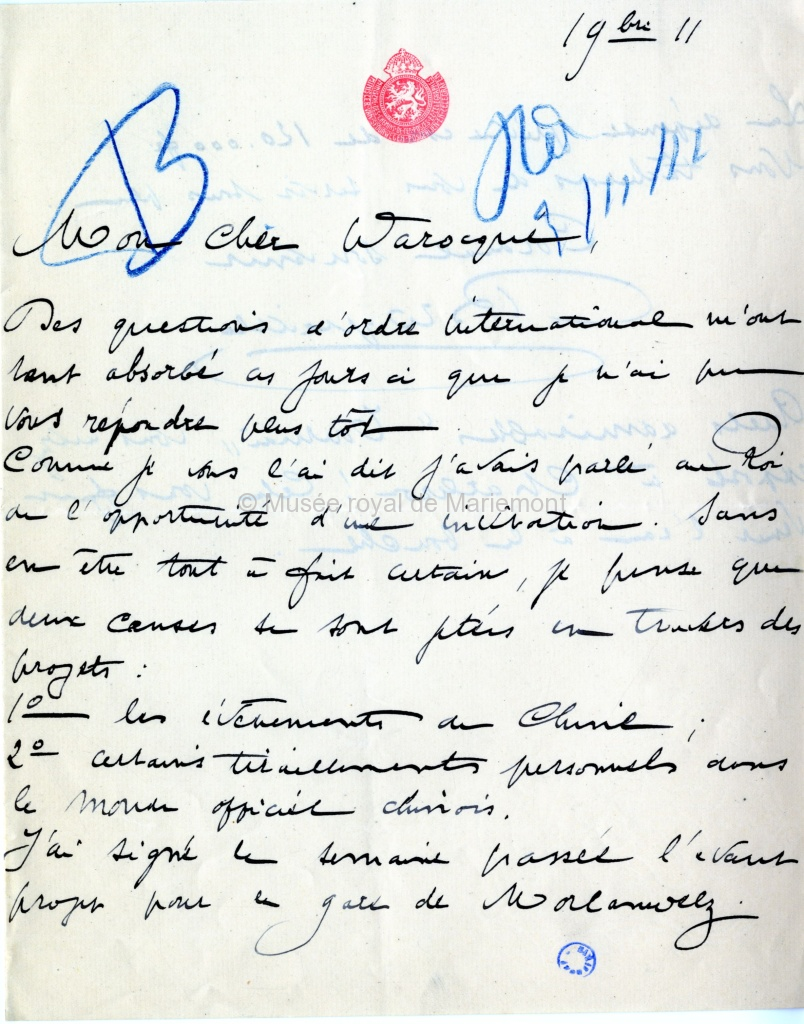 1 9bre 11
B
Mon cher Warocque,
Des questions d'ordre international m'ont
tant absorbé ces jours ci que je n'ai pu
vous répondre plus tôt.
Comme je vous l'ai dit j'avais parlé au Roi
de l'opportunité d'une invitation. Sans
en être tout à fait certain, je pense que
deux causes se sont jetées en travers des
projets :
1º les évènements de Chine ;
2º certains tiraillements personnels dans
le monde officiel chinois.
J'ai signé la semaine passée l'avant
projet pour la gare de Morlanwelz.
© Musée royal de Mariemont